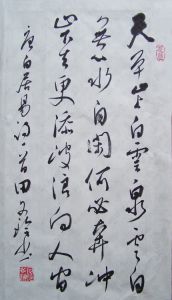 天平山上白雲泉雲自
無心水自闲何必奔冲
山下去更添波浪向人間
唐白居易诗一首田书